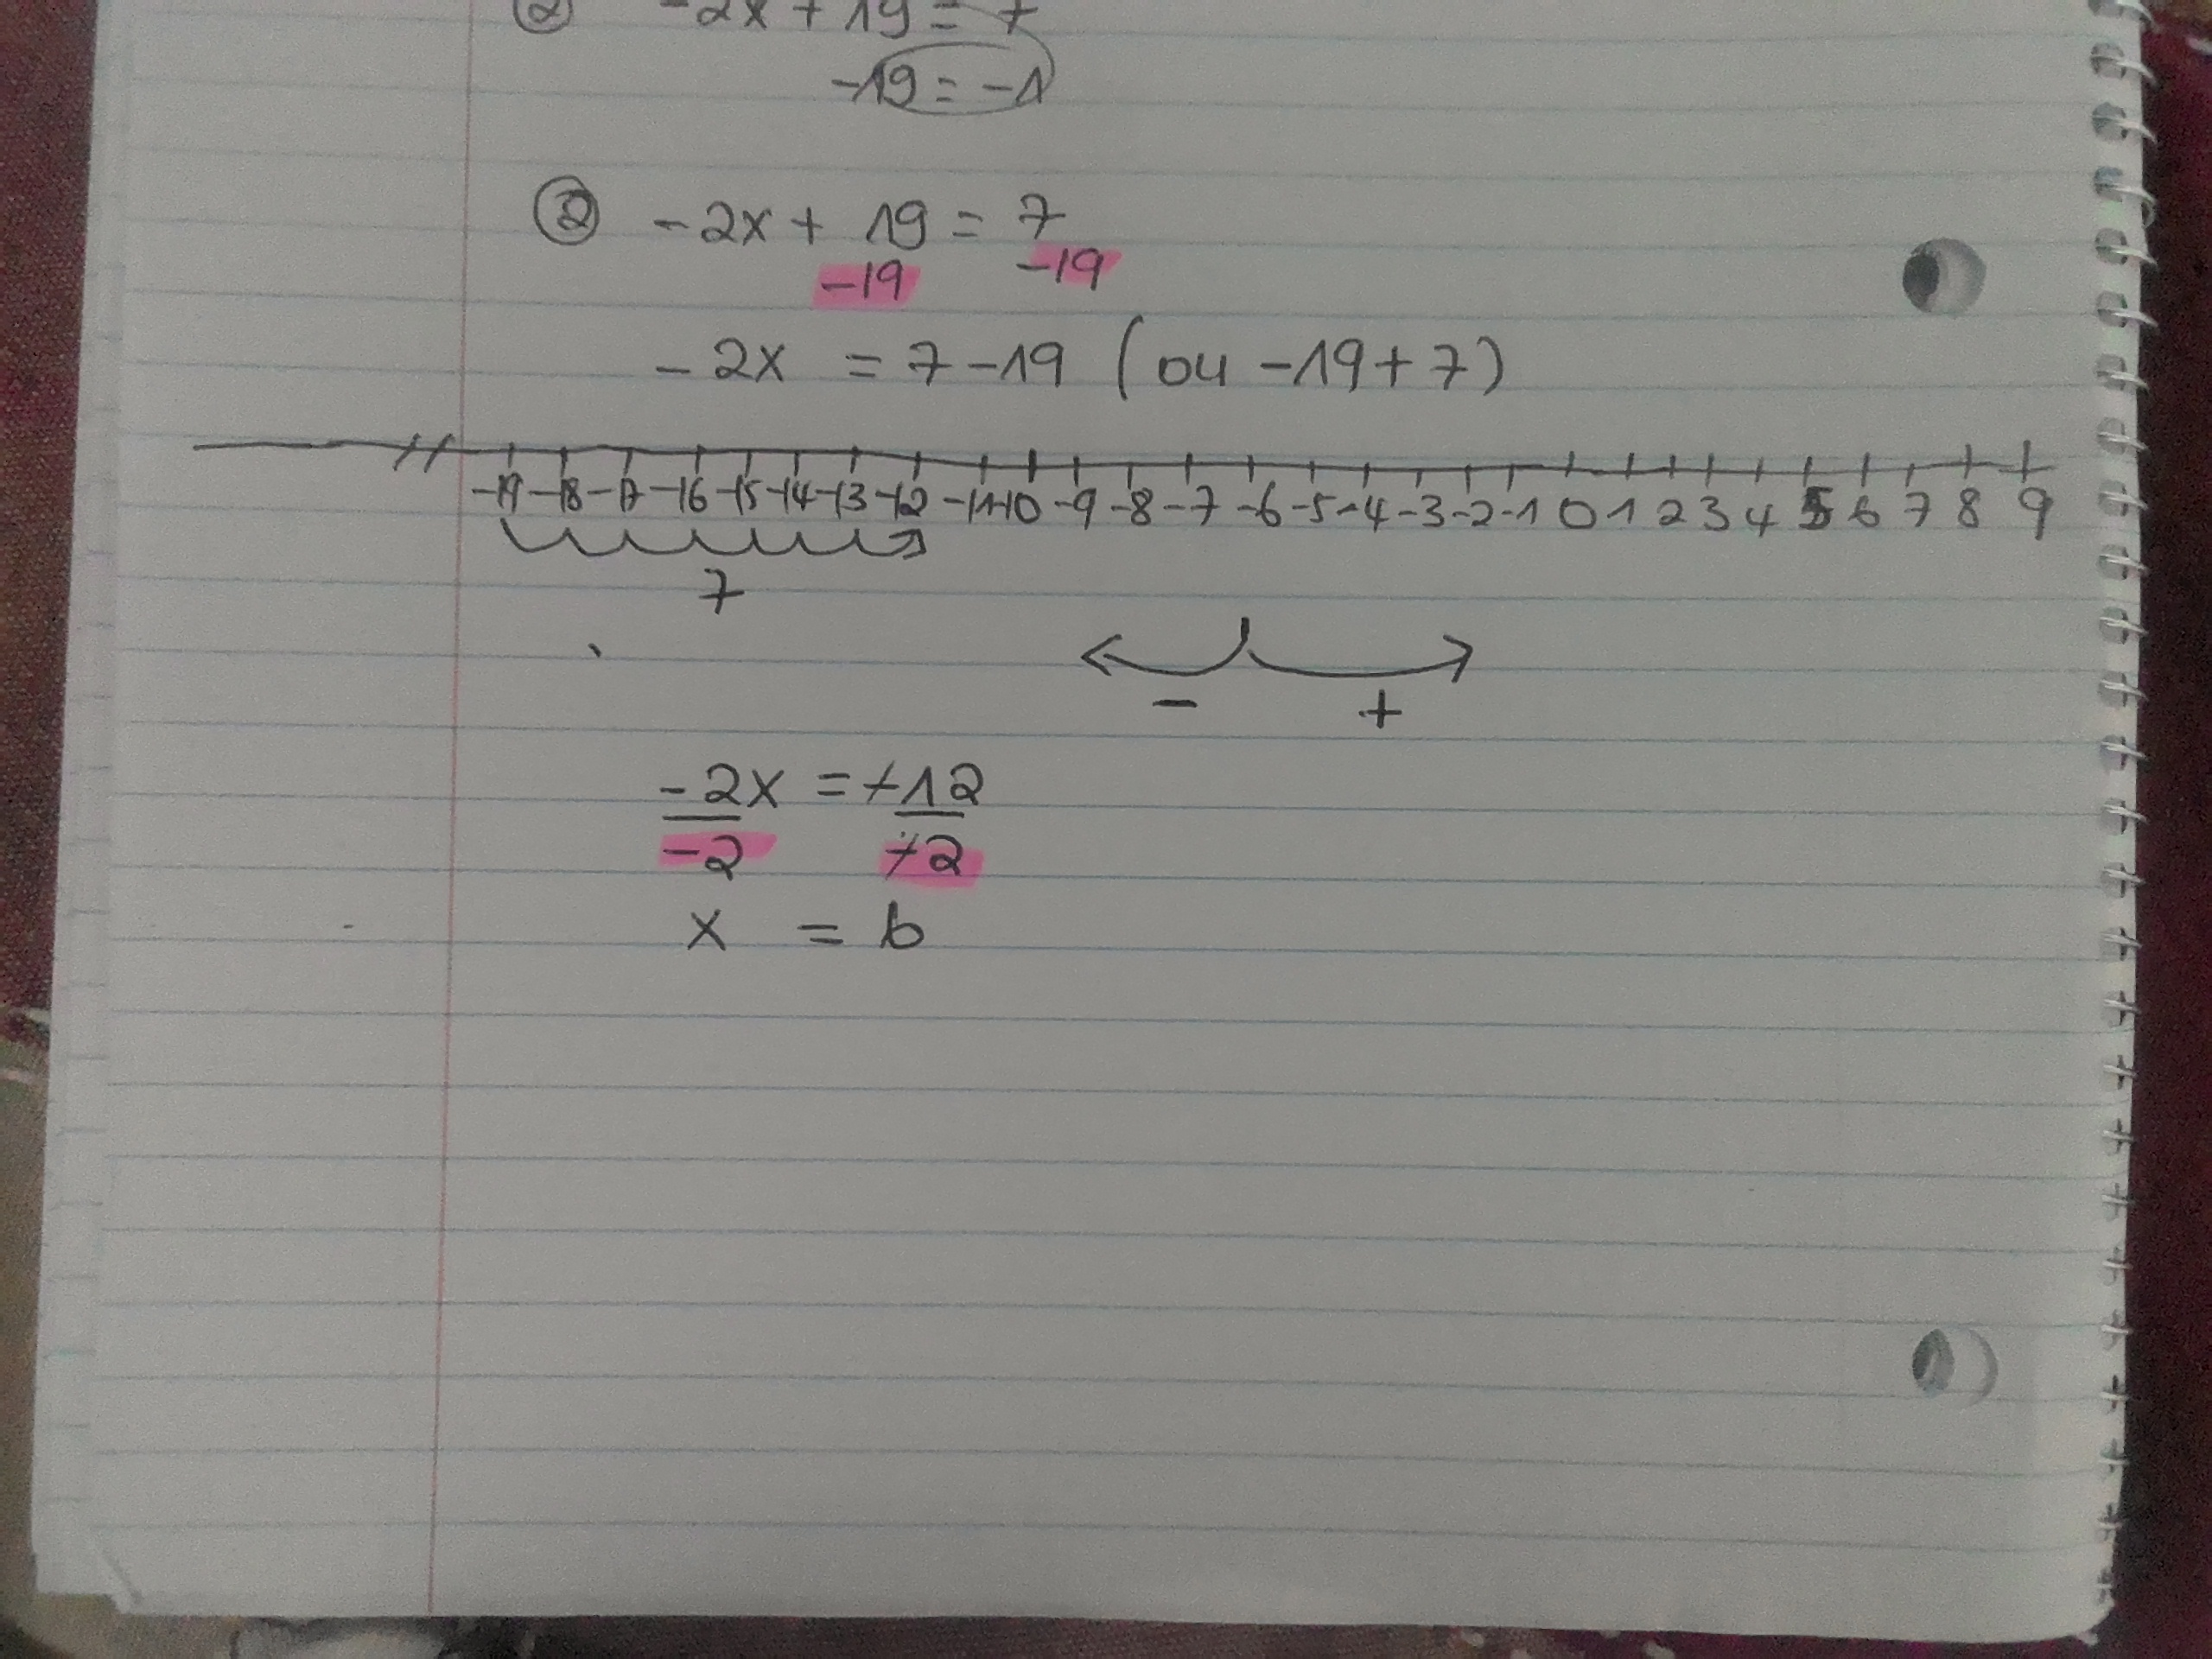 ② -2x + 19 = 7
-19 = -1
② -2x + 19 = 7
-19 -19
-2x = 7 -19 (ou -19 + 7)
-19 -18 -17 -16 -15 -14 -13 -12 -11 -10 -9 -8 -7 -6 -5 -4 -3 -2 -1 0 1 2 3 4 5 6 7 8 9
7
- +
-2x = -12
-2 -2
x = 6